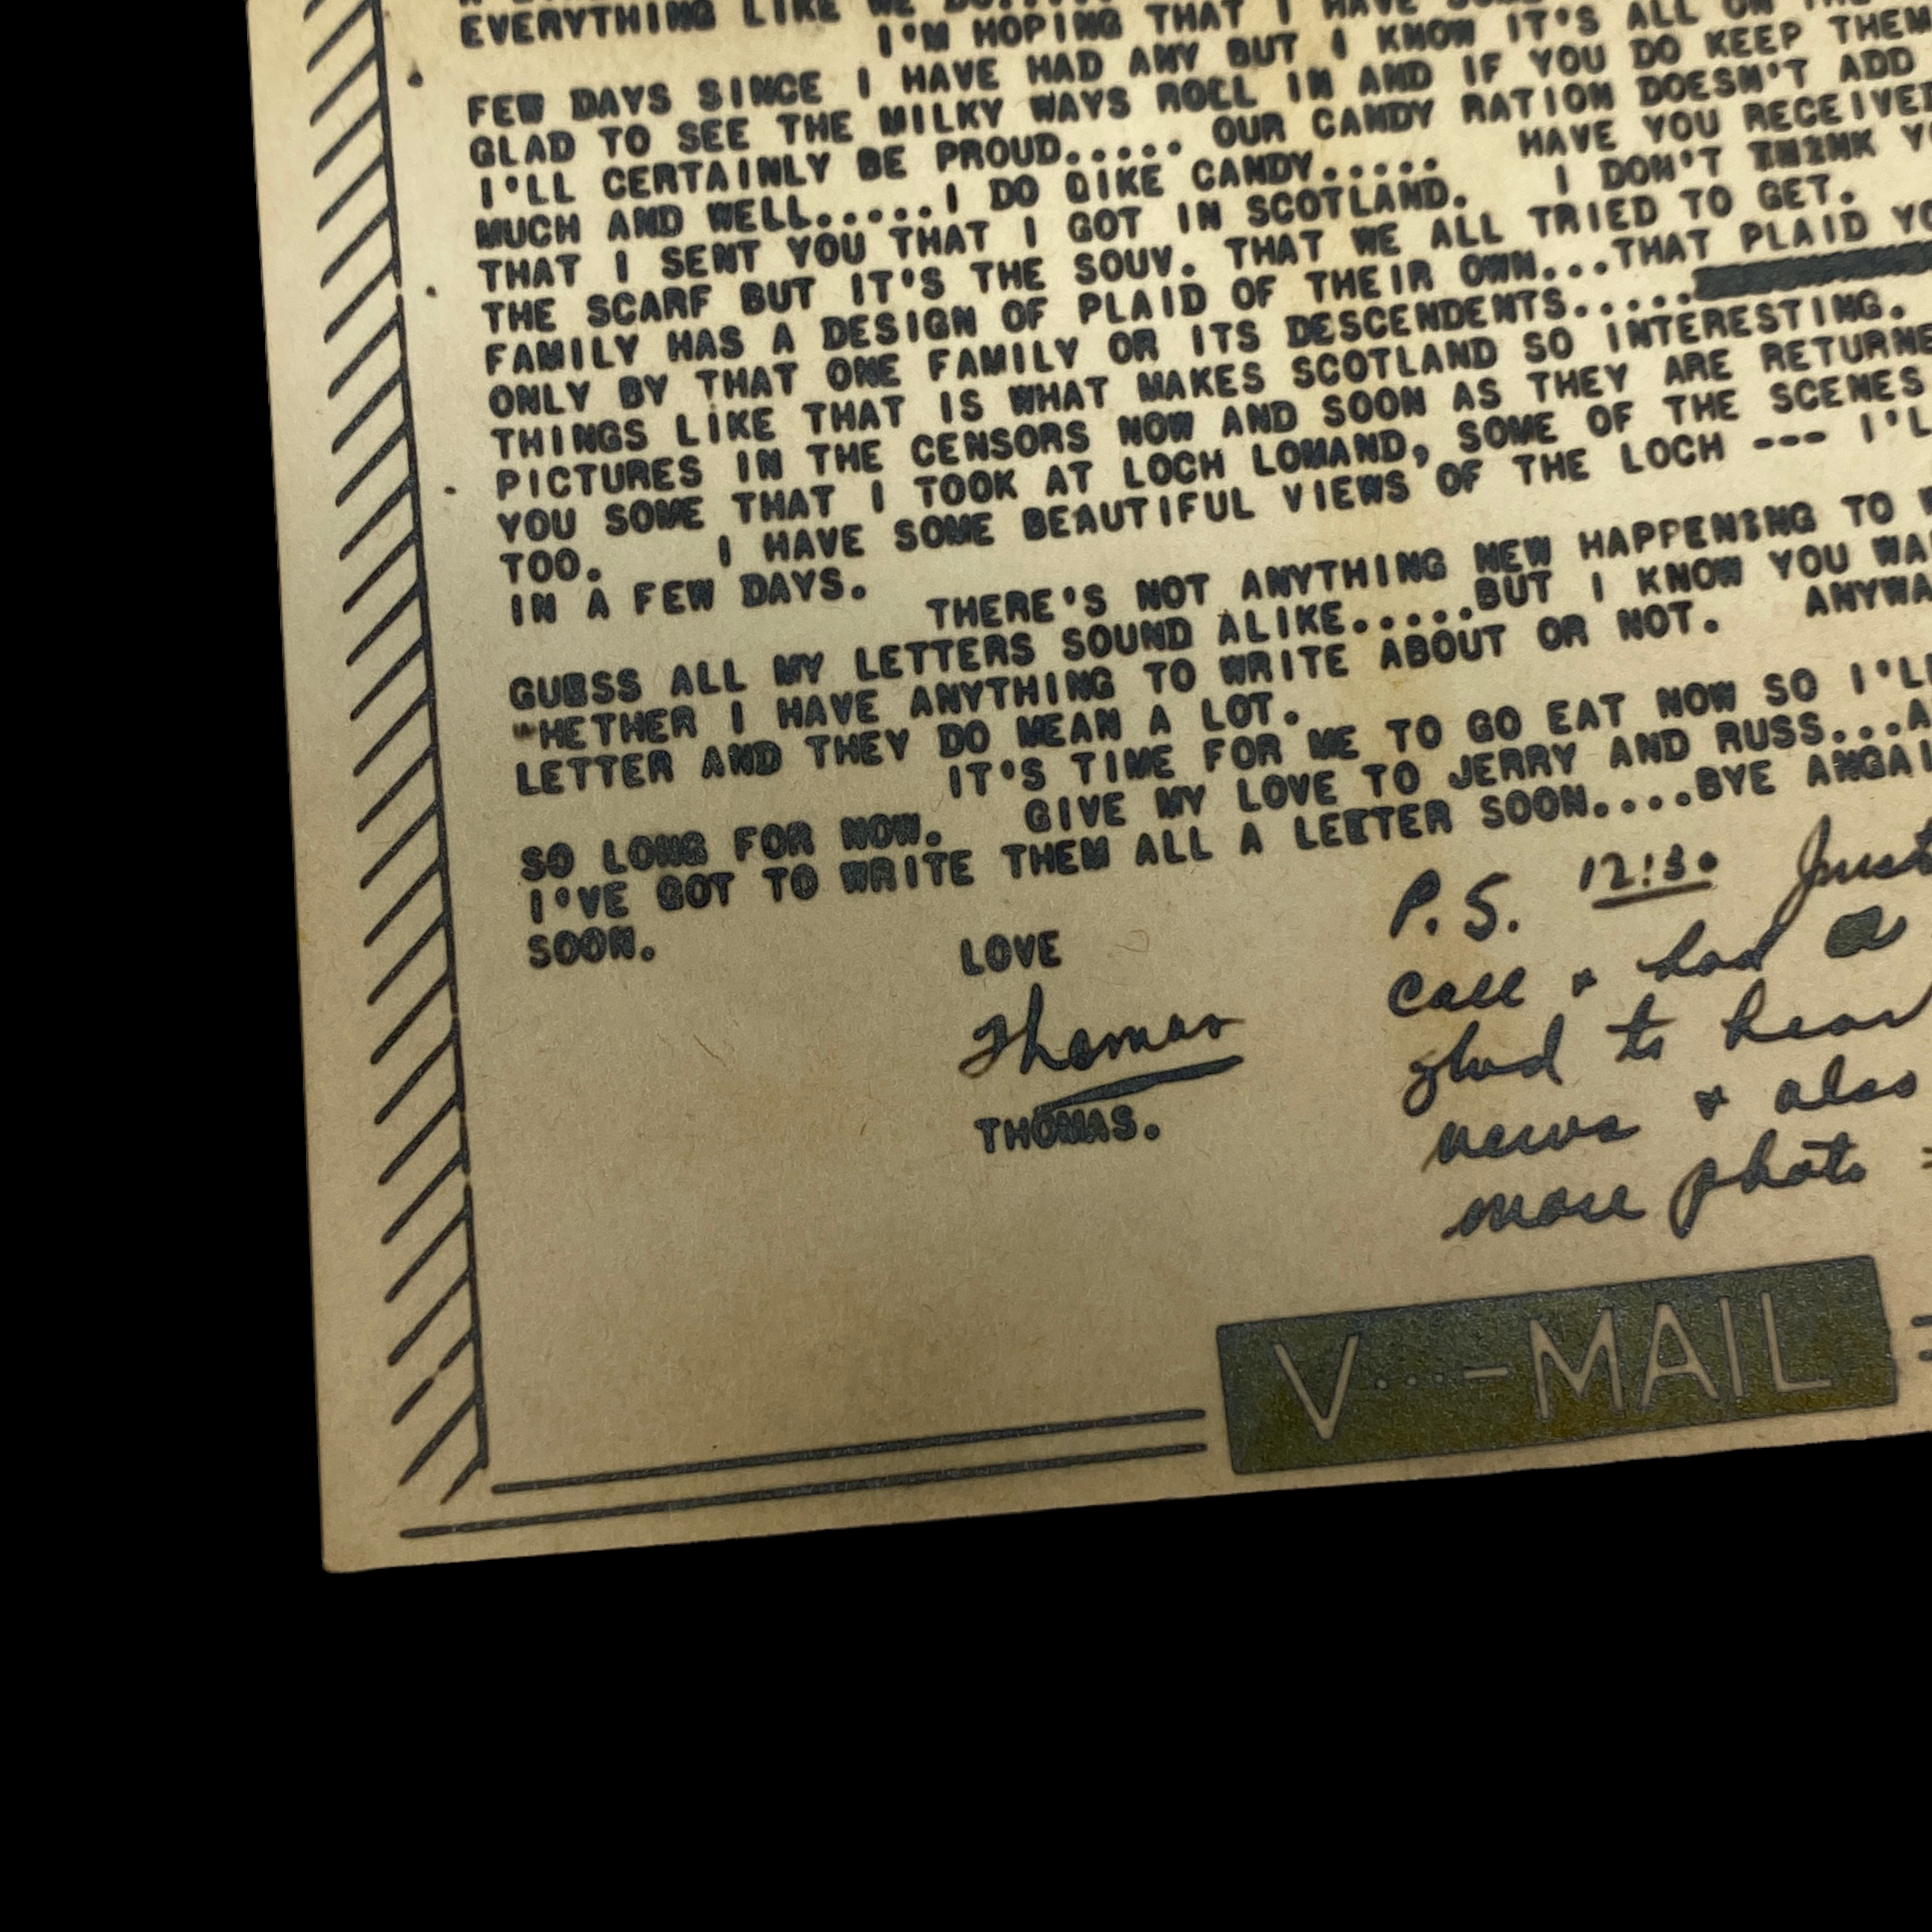 EVERYTHING LIKE WE
I'M HOPING THAT I HAVE
FEW DAYS SINCE I HAVE HAD ANY BUT I KNOW IT'S ALL ON
GLAD TO SEE THE MILKY WAYS ROLL IN AND IF YOU DO KEEP THEM
I'LL CERTAINLY BE PROUD..... OUR CANDY RATION DOESN'T ADD
MUCH AND WELL.....I DO QIKE CANDY..... HAVE YOU RECEIVED
THAT I SENT YOU THAT I GOT IN SCOTLAND. I DON'T THINK
THE SCARF BUT IT'S THE SOUV. THAT WE ALL TRIED TO GET.
FAMILY HAS A DESIGN OF PLAID OF THEIR OWN...THAT PLAID
ONLY BY THAT ONE FAMILY OR ITS DESCENDENTS.....
THINGS LIKE THAT IS WHAT MAKES SCOTLAND SO INTERESTING.
PICTURES IN THE CENSORS NOW AND SOON AS THEY ARE RETURNE
YOU SOME THAT I TOOK AT LOCH LOMAND, SOME OF THE SCENES
TOO. I HAVE SOME BEAUTIFUL VIEWS OF THE LOCH --- I'L
IN A FEW DAYS.
THERE'S NOT ANYTHING NEW HAPPENING TO
GUESS ALL MY LETTERS SOUND ALIKE.....BUT I KNOW YOU WA
WHETHER I HAVE ANYTHING TO WRITE ABOUT OR NOT. ANYWA
LETTER AND THEY DO MEAN A LOT.
IT'S TIME FOR ME TO GO EAT NOW SO I'LL
SO LONG FOR NOW. GIVE MY LOVE TO JERRY AND RUSS...A
I'VE GOT TO WRITE THEM ALL A LEETTER SOON....BYE ANGAI
SOON.
LOVE
Thomas
THOMAS.
P.S. 12:30 Just
call & had a
glad to hear
news & also
more photo
V...-MAIL